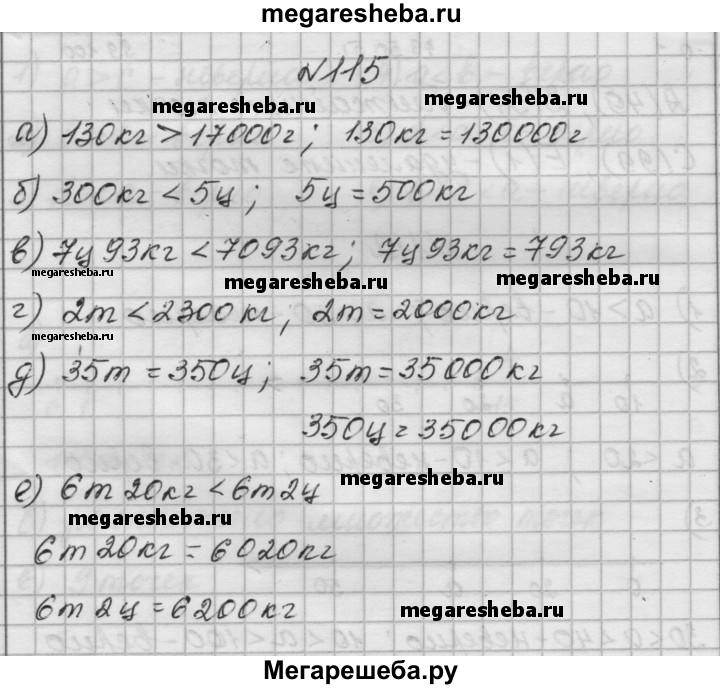 megaresheba.ru
№115
megaresheba.ru megaresheba.ru
а) 130кг > 17000г; 130кг = 130000г
б) 300кг < 5ц; 5ц = 500кг
в) 7ц 93кг < 7093кг; 7ц 93кг = 793кг
megaresheba.ru megaresheba.ru megaresheba.ru
г) 2т < 2300кг; 2т = 2000кг
megaresheba.ru
д) 35т = 350ц; 35т = 35000кг
350ц = 35000кг
е) 6т 20кг < 6т 2ц megaresheba.ru
megaresheba.ru
6т 20кг = 6020кг
6т 2ц = 6200кг megaresheba.ru
Мегарешеба.ру